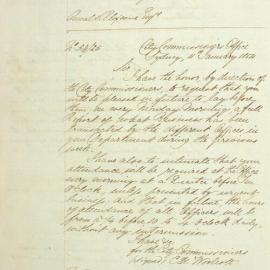 City Commissioners Office
Sydney, 11 January 1854
Sir
I have the honor, by direction of
the City Commissioners, to request that you
will be pleased in future to lay before
them on every Thursday Morning a full
Report of what Business has been
transacted by the different Officers in
your department during the previous
week.
I have also to intimate that your
attendance will be required at the Office
every morning at a Quarter before ten
o'Clock, unless prevented by urgent
business, and that in future, the hours
of attendance of all Officers will be
from to 4 o'Clock daily,
without any intermission
I have &c
for the City Commissioners
signed